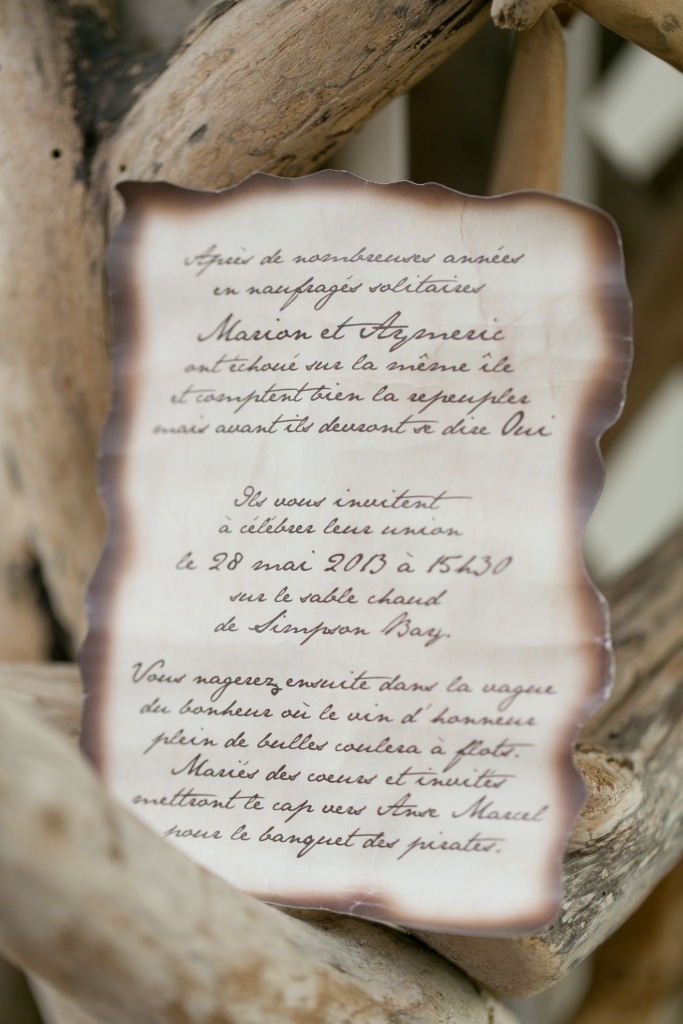 Après de nombreuses années
en naufragés solitaires
Marion et Aymeric
ont échoué sur la même île
et comptent bien la repeupler
mais avant ils devront se dire Oui
Ils vous invitent
à célébrer leur union
le 28 mai 2013 à 15h30
sur le sable chaud
de Simpson Bay.
Vous nagerez ensuite dans la vague
du bonheur où le vin d'honneur
plein de bulles coulera à flots.
Mariés des coeurs et invités
mettront le cap vers Anse Marcel
pour le banquet des pirates.